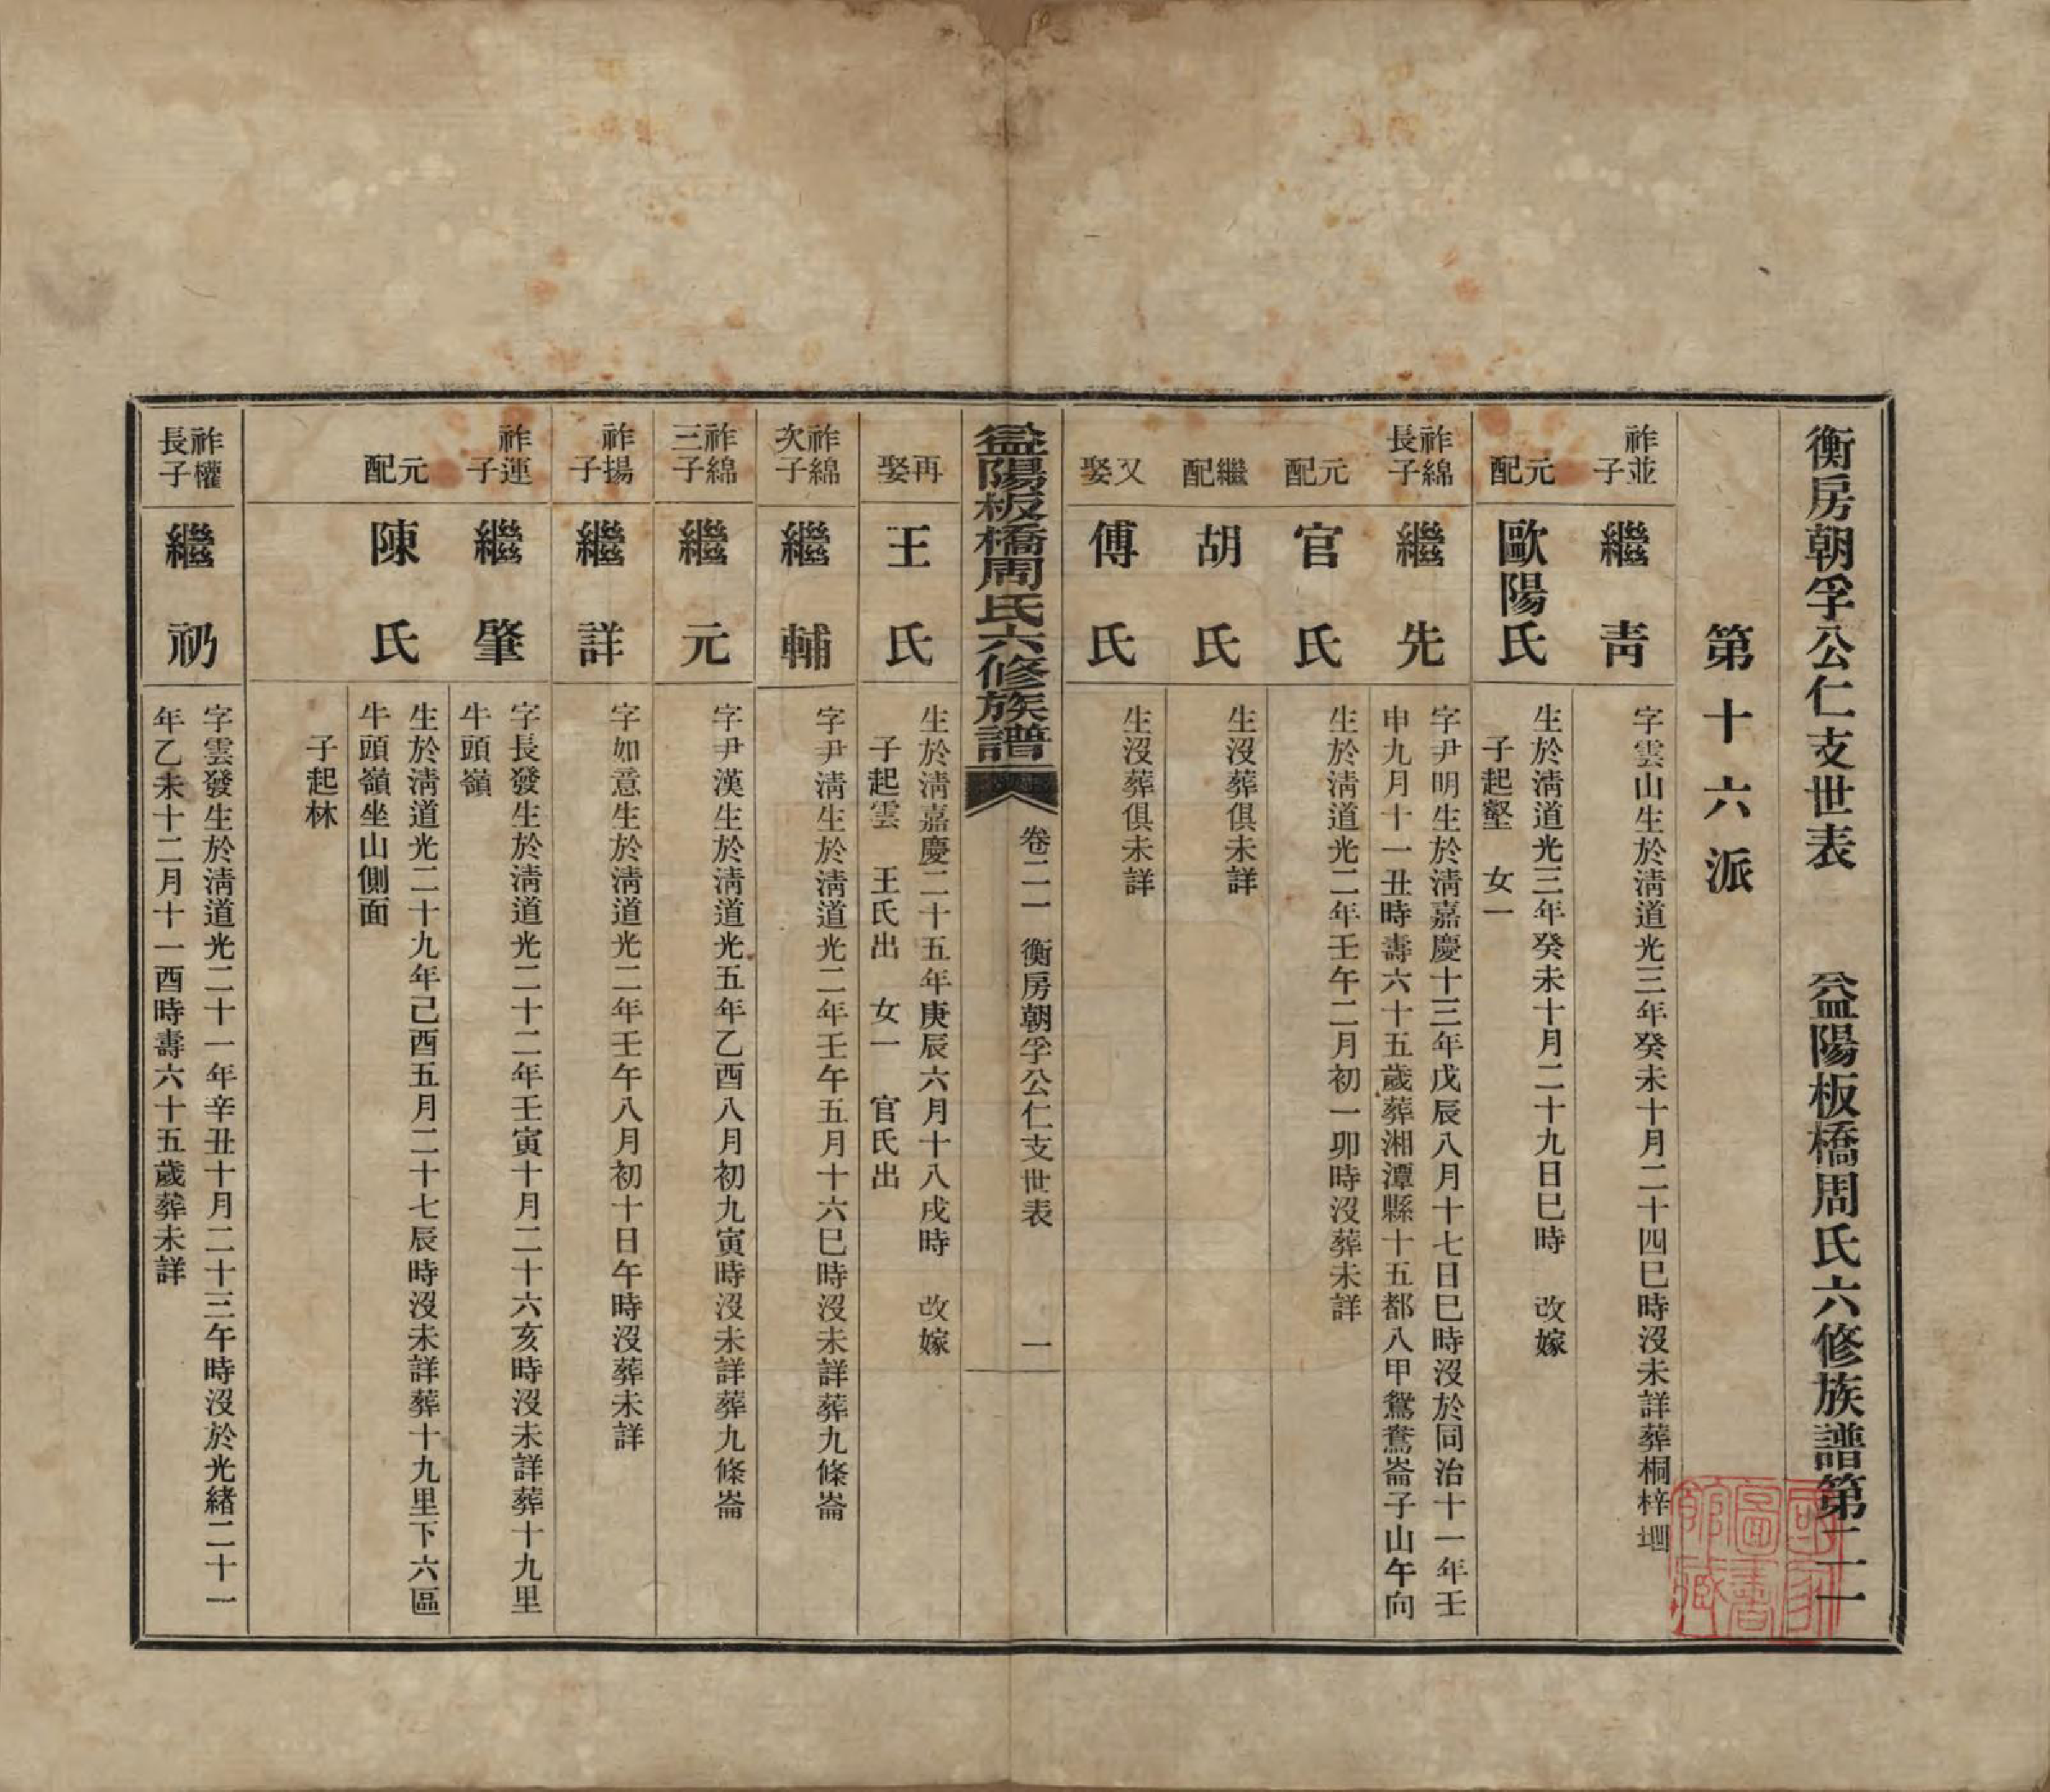 衡房朝孚公仁支世表　益陽板橋周氏六修族譜第二一
第十六派
祚並子
繼靑
字雲山生於淸道光三年癸未十月二十四巳時沒未詳葬桐梓
元配
歐陽氏
生於淸道光三年癸未十月二十九日巳時　改嫁
子起壑　女一
祚綿長子
繼先
字尹明生於淸嘉慶十三年戊辰八月十七日巳時沒於同治十一年壬
申九月十一丑時壽六十五歲葬湘潭縣十五都八甲鴛鴦崙子山午向
元配
官氏
生於淸道光二年壬午二月初一卯時沒葬未詳
繼配
胡氏
生沒葬俱未詳
又娶
傅氏
生沒葬俱未詳
益陽板橋周氏六修族譜
卷二一　衡房朝孚公仁支世表　一
再娶
王氏
生於淸嘉慶二十五年庚辰六月十八戌時　改嫁
子起雲　王氏出　女一　官氏出
祚綿次子
繼輔
字尹淸生於淸道光二年壬午五月十六巳時沒未詳葬九條崙
祚綿三子
繼元
字尹漢生於淸道光五年乙酉八月初九寅時沒未詳葬九條崙
祚揚子
繼詳
字如意生於淸道光二年壬午八月初十日午時沒葬未詳
祚運子
繼肇
字長發生於淸道光二十二年壬寅十月二十六亥時沒未詳葬十九里
牛頭嶺
元配
陳氏
生於淸道光二十九年己酉五月二十七辰時沒未詳葬十九里下六區
牛頭嶺坐山側面
子起林
祚權長子
繼礽
字雲發生於淸道光二十一年辛丑十月二十三午時沒於光緒二十一
年乙未十二月十一酉時壽六十五歲葬未詳
國家圖書館藏